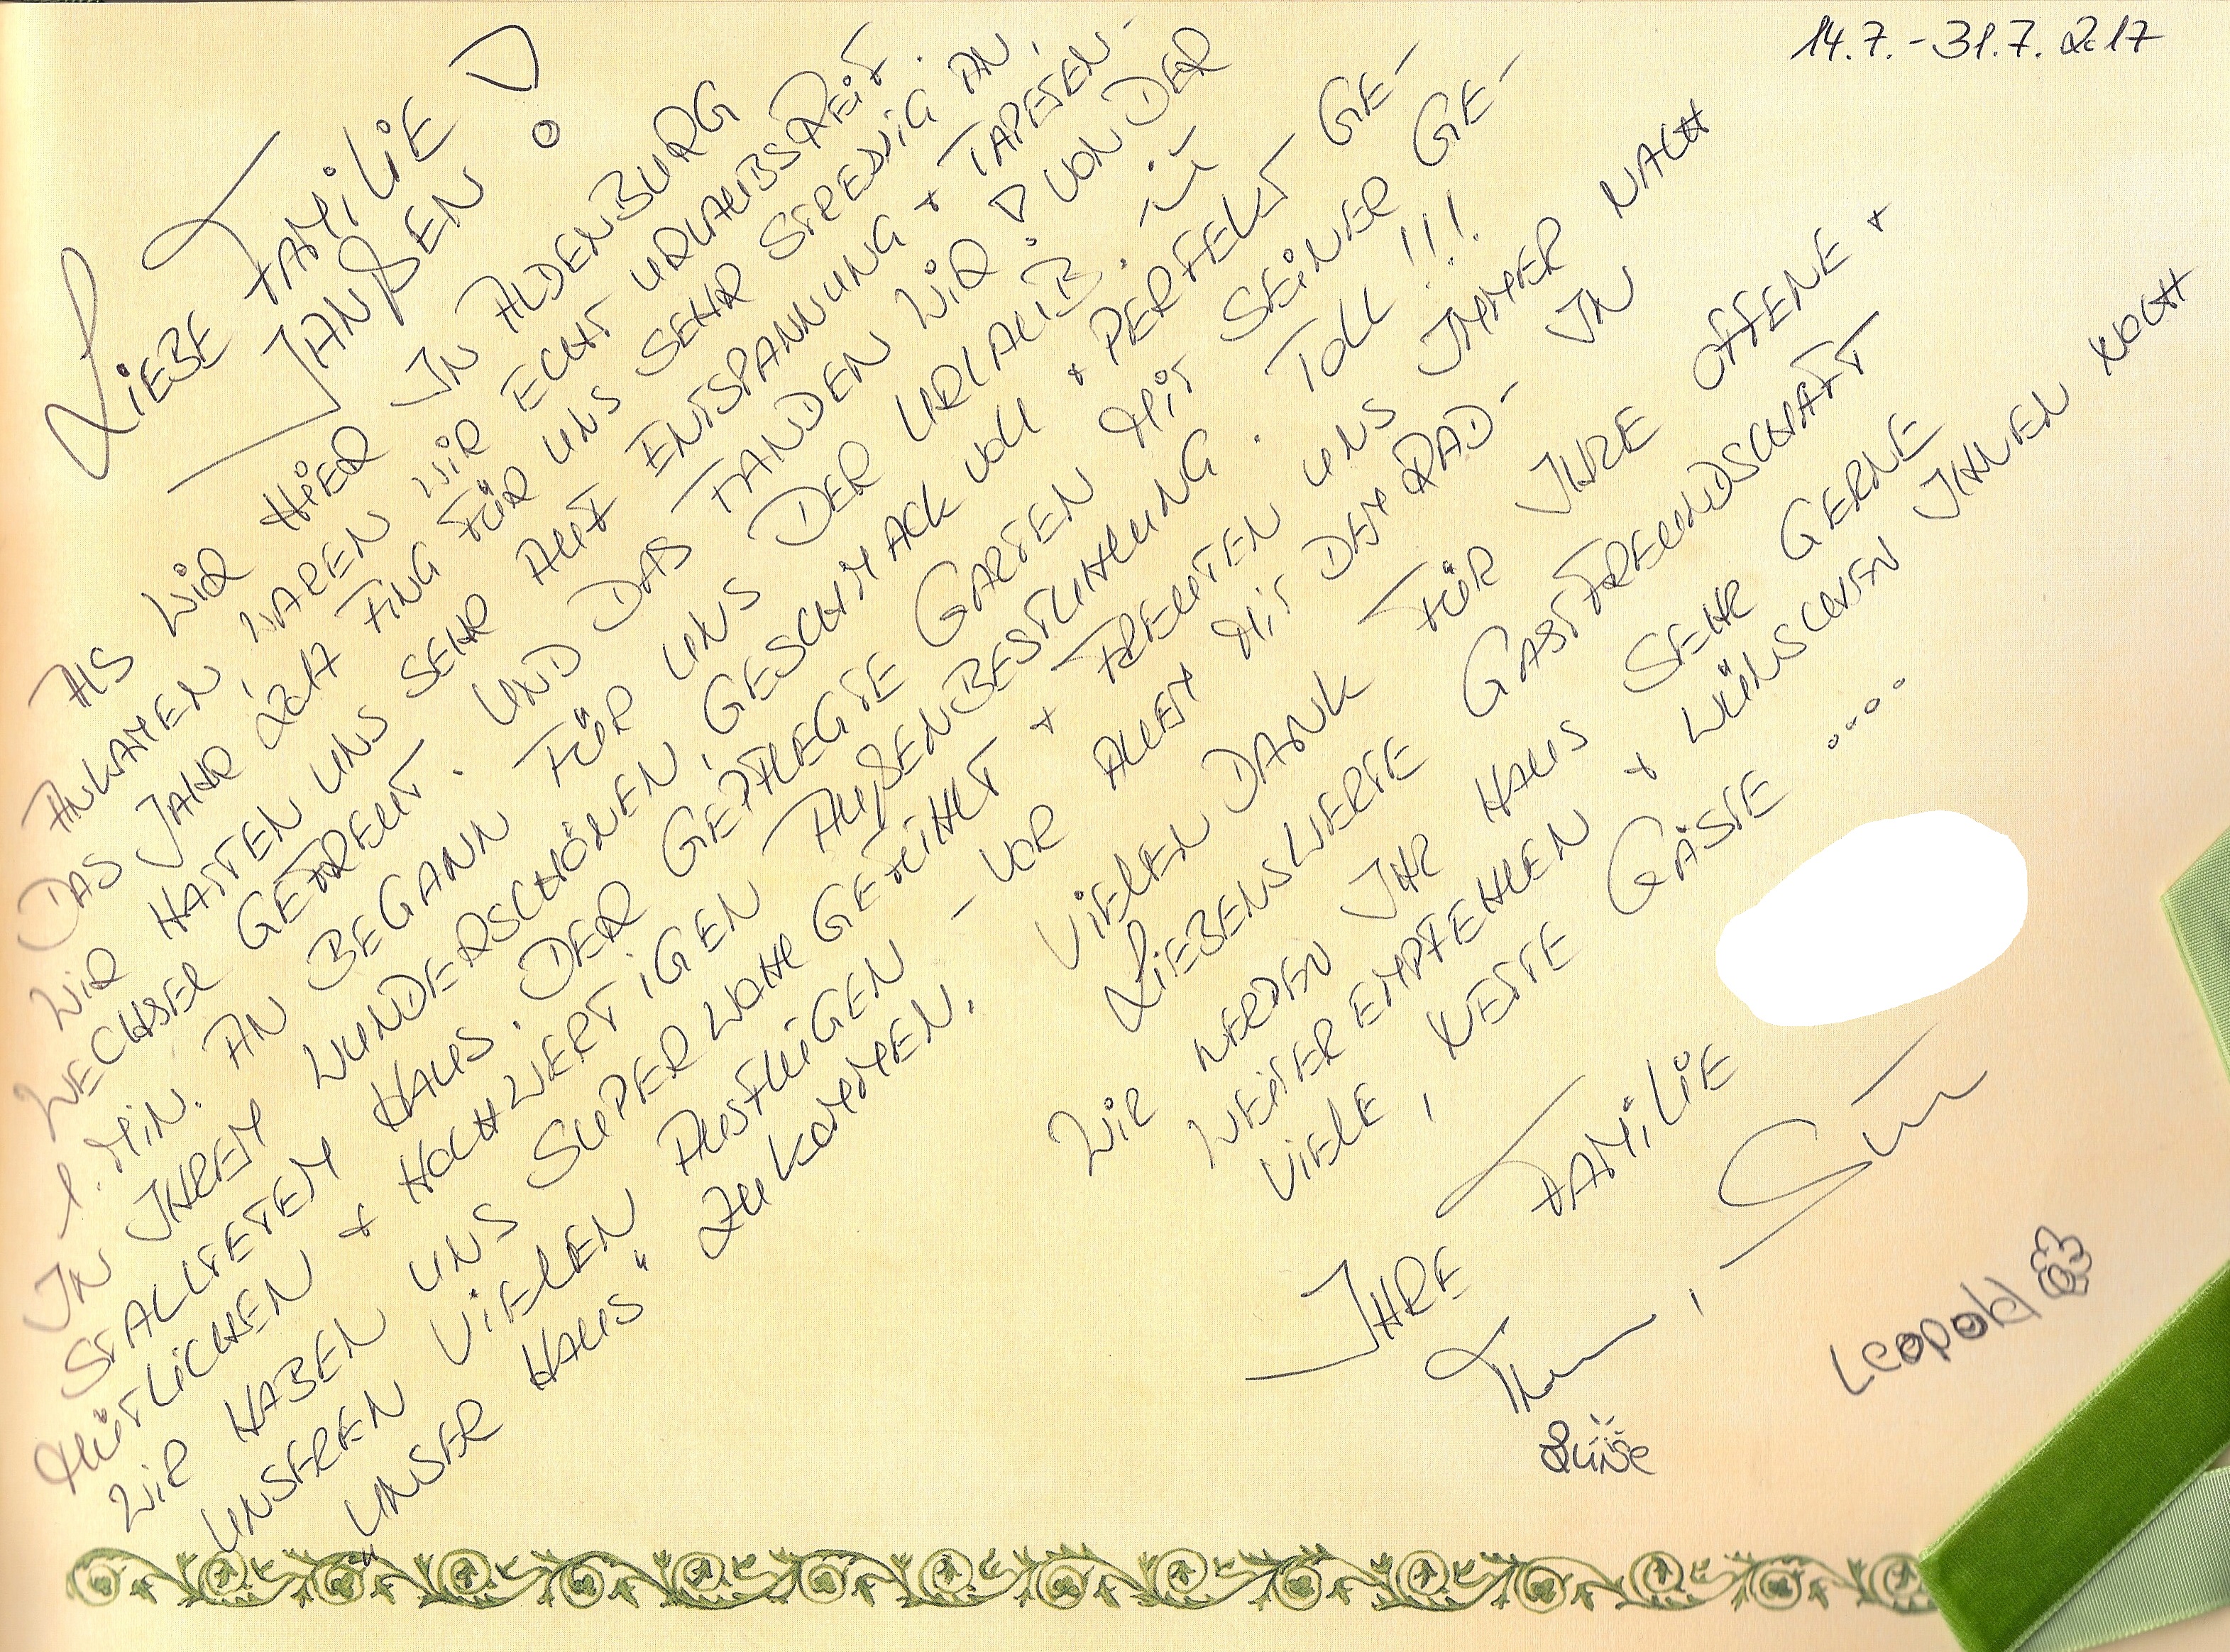 14.7.-31.7.2017
LIEBE FAMILIE
JANßEN!
ALS WIR HIER IN ALDENBURG
ANKAMEN WAREN WIR ECHT URLAUBSREIF.
DAS JAHR 2017 FING FÜR UNS SEHR STRESSIG AN.
WIR HATTEN UNS SEHR AUF ENTSPANNUNG + TAPETEN-
WECHSEL GEFREUT. UND DAS FANDEN WIR! VON DER
1. MIN. AN BEGANN FÜR UNS DER URLAUB.
IN IHREM WUNDERSCHÖNEN, GESCHMACKVOLL + PERFEKT GE-
STALTETEM HAUS. DER GEPFLEGTE GARTEN MIT SEINER GE-
MÜTLICHEN + HOCHWERTIGEN AUßENBESTUHLUNG. TOLL!!!
WIR HABEN UNS SUPER WOHL GEFÜHLT + FREUTEN UNS IMMER NACH
UNSEREN VIELEN AUSFLÜGEN - VOR ALLEM MIT DEM RAD - IN
"UNSER HAUS" ZU KOMMEN.
VIELEN DANK FÜR IHRE OFFENE +
LIEBENSWERTE GASTFREUNDSCHAFT
WIR WERDEN IHR HAUS SEHR GERNE
WEITER EMPFEHLEN + WÜNSCHEN IHNEN NOCH
VIELE, NETTE GÄSTE ....
IHRE FAMILIE
Leopold